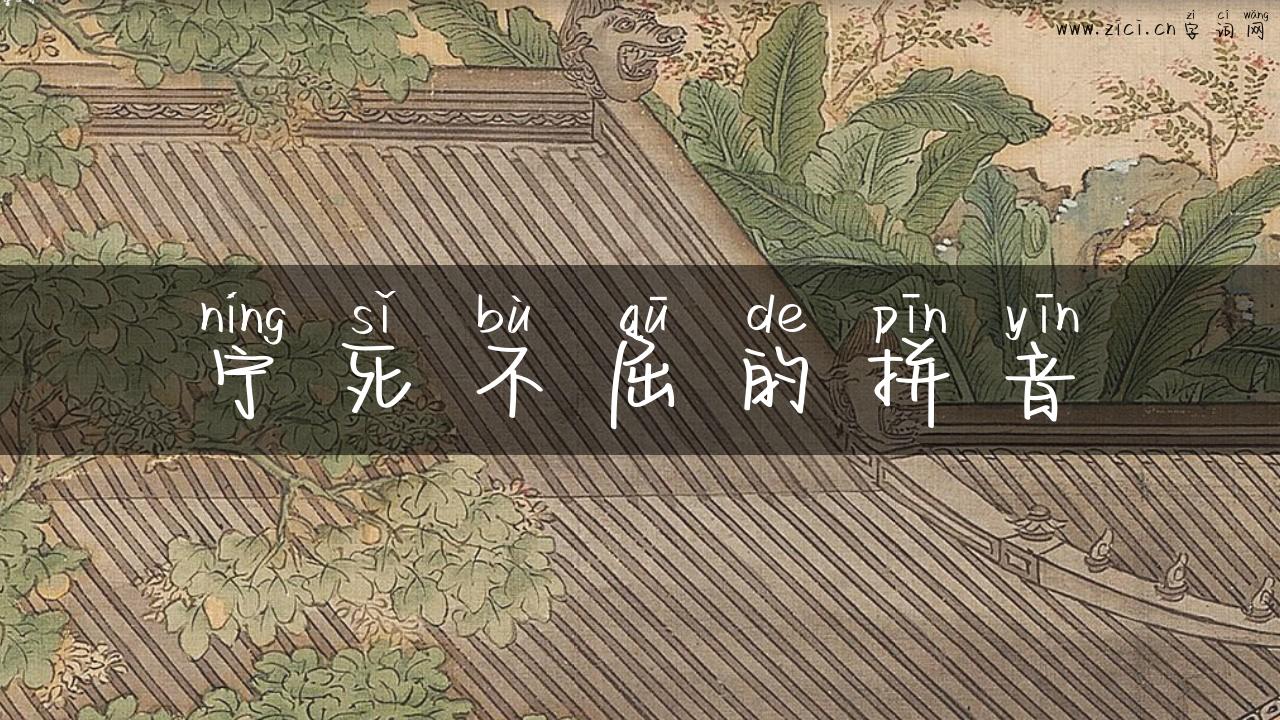 zì cí wǎng
www.zici.cn 字词网
níng sǐ bù qū de pīn yīn
宁死不屈的拼音